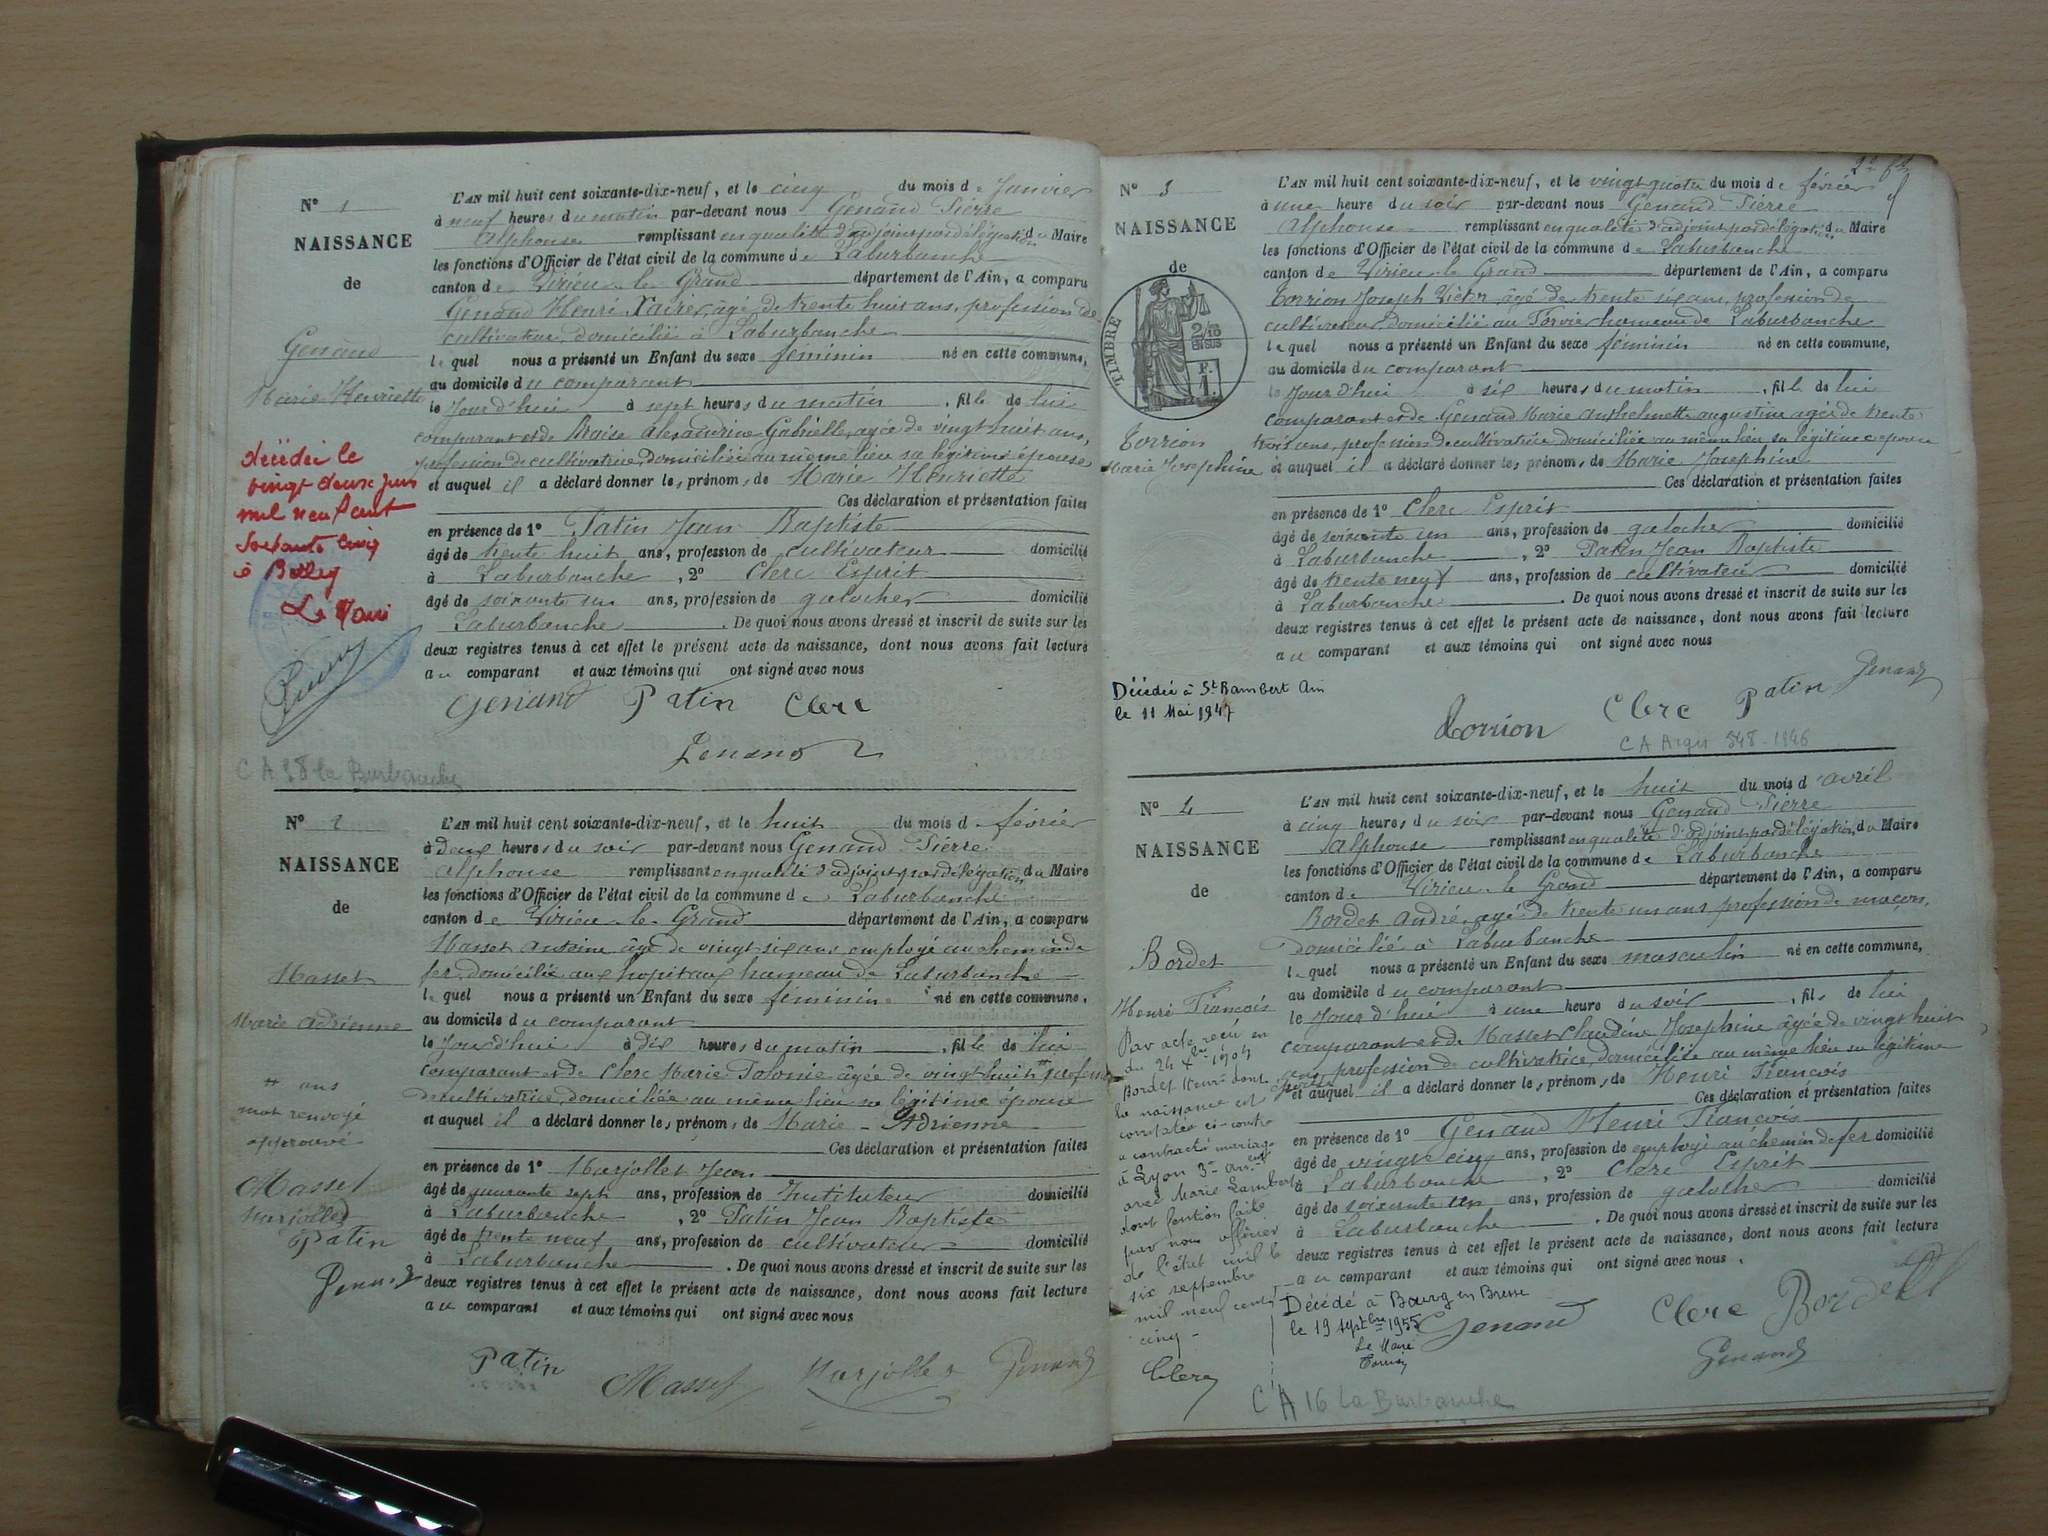 N° 1
NAISSANCE
de
Genand
Marie Henriette
décédée le
vingt deux juin
mil neuf cent
soixante cinq
à Belley
Le Maire
C A 98 la Burbanche
L'AN mil huit cent soixante-dix-neuf, et le cinq du mois de Janvier
à neuf heures du matin par-devant nous Genand Pierre
Alphonse remplissant en qualité d'adjoint par délégation du Maire
les fonctions d'Officier de l'état civil de la commune de Laburbanche
canton de Virieu-le-Grand département de l'Ain, a comparu
Genand Henri Xavier, âgé de trente huit ans, profession de
cultivateur, domicilié à Laburbanche
lequel nous a présenté un Enfant du sexe féminin né en cette commune,
au domicile du comparant
le Jour d'hui à sept heures du matin, fille de lui
comparant et de Alexandrine Gabrielle, agée de vingt huit ans,
profession de cultivatrice, domiciliée au même lieu sa légitime épouse
et auquel il a déclaré donner les prénoms de Marie Henriette
Ces déclaration et présentation faites
en présence de 1° Patin Jean Baptiste
âgé de trente huit ans, profession de cultivateur domicilié
à Laburbanche, 2° Clerc Esprit
âgé de soixante un ans, profession de galocher domicilié
Laburbanche. De quoi nous avons dressé et inscrit de suite sur les
deux registres tenus à cet effet le présent acte de naissance, dont nous avons fait lecture
au comparant et aux témoins qui ont signé avec nous
Genand Patin Clerc
Genand
N° 2
NAISSANCE
de
Masset
Marie Adrienne
ans
mot renvoyé
approuvé
Masset
Marjollet
Patin
Genand
L'AN mil huit cent soixante-dix-neuf, et le huit du mois d février
à deux heures du soir par-devant nous Genand Pierre
Alphonse remplissant en qualité d'adjoint par délégation du Maire
les fonctions d'Officier de l'état civil de la commune de Laburbanche
canton de Virieu-le-Grand département de l'Ain, a comparu
Masset Antoine âgé de vingt six ans employé au chemin de
fer, domicilié aux hopitaux hameau de Laburbanche
lequel nous a présenté un Enfant du sexe féminin né en cette commune,
au domicile du comparant
le Jour d'hui à dix heures du matin, fille de lui
comparant et de Clerc Marie Polonie âgée de vingt huit profession
de cultivatrice, domiciliée au même lieu sa légitime épouse
et auquel il a déclaré donner les prénoms de Marie-Adrienne
Ces déclaration et présentation faites
en présence de 1° Marjollet Jean
âgé de quarante sept ans, profession de Instituteur domicilié
à Laburbanche, 2° Patin Jean Baptiste
âgé de trente neuf ans, profession de cultivateur domicilié
à Laburbanche. De quoi nous avons dressé et inscrit de suite sur les
deux registres tenus à cet effet le présent acte de naissance, dont nous avons fait lecture
au comparant et aux témoins qui ont signé avec nous
Patin Masset Marjollet Genand
N° 3
NAISSANCE
de
TIMBRE
2/10
EN SUS
F.
1.
Torrion
Marie Josephine
Décédée à St Rambert Ain
le 11 Mai 1947
L'AN mil huit cent soixante-dix-neuf, et le vingt quatre du mois de février
à une heure du soir par-devant nous Genand Pierre
Alphonse remplissant en qualité d'adjoint par délégation du Maire
les fonctions d'Officier de l'état civil de la commune de Laburbanche
canton de Virieu-le-Grand département de l'Ain, a comparu
Torrion Joseph Victor, âgé de trente six ans, profession de
cultivateur, domicilié au hameau de Laburbanche
lequel nous a présenté un Enfant du sexe féminin né en cette commune,
au domicile du comparant
le Jour d'hui à six heures du matin, fille de lui
comparant et de Genand Marie Anthelmette Augustine agée de trente
trois ans, profession de cultivatrice, domiciliée au même lieu sa légitime épouse
et auquel il a déclaré donner les prénoms de Marie Josephine
Ces déclaration et présentation faites
en présence de 1° Clerc Esprit
âgé de soixante un ans, profession de galocher domicilié
à Laburbanche, 2° Patin Jean Baptiste
âgé de trente neuf ans, profession de cultivateur domicilié
à Laburbanche. De quoi nous avons dressé et inscrit de suite sur les
deux registres tenus à cet effet le présent acte de naissance, dont nous avons fait lecture
au comparant et aux témoins qui ont signé avec nous
Torrion Clerc Patin Genand
N° 4
NAISSANCE
de
Bordet
Henri François
Par acte reçu en
Bordet Henri dont
la naissance est
comptée ci-contre
a contracté mariage
à Lyon 3e arr
avec Marie Lambert
dont mention faite
par nous officier
de l'état civil le
six septembre
mil neuf cent
cinq-
Clerc
L'AN mil huit cent soixante-dix-neuf, et le huit du mois d'avril
à cinq heures du soir par-devant nous Genand Pierre
Alphonse remplissant en qualité d'adjoint par délégation du Maire
les fonctions d'Officier de l'état civil de la commune de Laburbanche
canton de Virieu-le-Grand département de l'Ain, a comparu
Bordet André, agé de trente un ans profession de maçon,
domicilié à Laburbanche
lequel nous a présenté un Enfant du sexe masculin né en cette commune,
au domicile du comparant
le Jour d'hui à une heure du soir, fils de lui
comparant et de Masset Claudine Josephine âgée de vingt huit
ans, profession de cultivatrice, domiciliée au même lieu sa légitime
épouse
et auquel il a déclaré donner les prénoms de Henri François
Ces déclaration et présentation faites
en présence de 1° Genand Henri François
âgé de vingt cinq ans, profession de employé au chemin de fer domicilié
à Laburbanche, 2° Clerc Esprit
âgé de soixante un ans, profession de galocher domicilié
à Laburbanche. De quoi nous avons dressé et inscrit de suite sur les
deux registres tenus à cet effet le présent acte de naissance, dont nous avons fait lecture
au comparant et aux témoins qui ont signé avec nous.
Décédé à Bourg en Bresse
le 19 septbre 1955
Le Maire
Genand Clerc Bordet
Genand
C A 16 La Burbanche